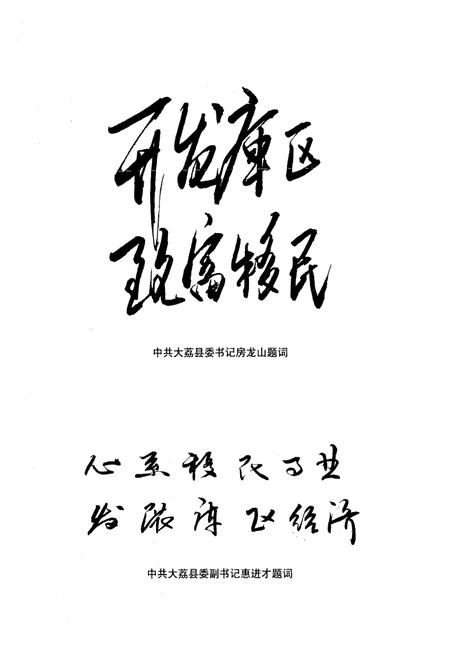 开发库区
致富移民
中共大荔县委书记房龙山题词
心系移民事业
发展库区经济
中共大荔县委副书记惠进才题词